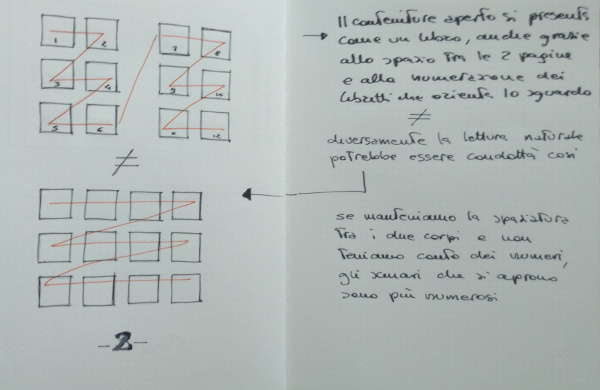 1 2 7 8
3 4 9 10
5 6 11 12
≠
-2-
→ Il contenitore aperto si presenta
come un libro, anche grazie
allo spazio tra le 2 pagine
e alla numerazione dei
libretti che orienta lo sguardo
≠
diversamente la lettura naturale
potrebbe essere condotta così
se manteniamo la spaziatura
tra i due corpi e non
teniamo conto dei numeri,
gli scenari che si aprono
sono più numerosi